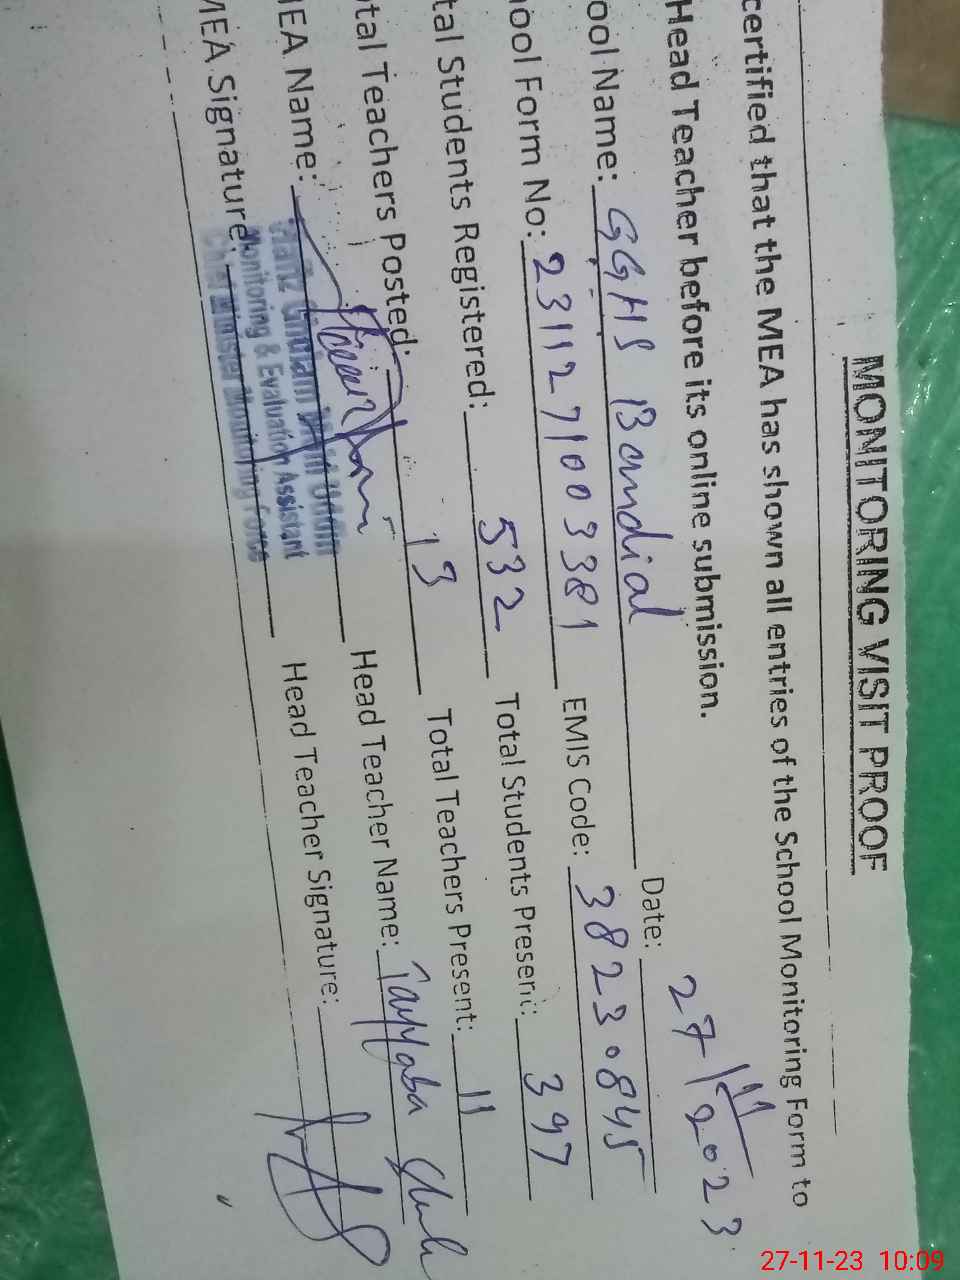 MONITORING VISIT PROOF
certified that the MEA has shown all entries of the School Monitoring Form to
Head Teacher before its online submission.
ool Name: GGHS Bandial Date: 27/11/2023
ool Form No: 2311271003381 EMIS Code: 38230845
tal Students Registered: 532 Total Students Present: 397
tal Teachers Posted: 13 Total Teachers Present: 11
EA Name: Head Teacher Name: Tayyaba
MEA Signature: Head Teacher Signature:
Monitoring & Evaluation Assistant
Chief Minister Monitoring Force
27-11-23 10:09